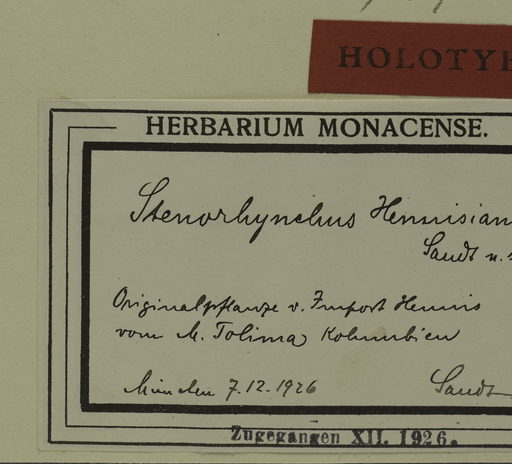 HOLOTYPE
HERBARIUM MONACENSE.
Stenorhynchus Hennisian
Sandt n. s
Originalpflanze v. Import Hennis
vom M. Tolima Kolumbien
München 7.12.1926 Sandt
Zugegangen XII. 1926.